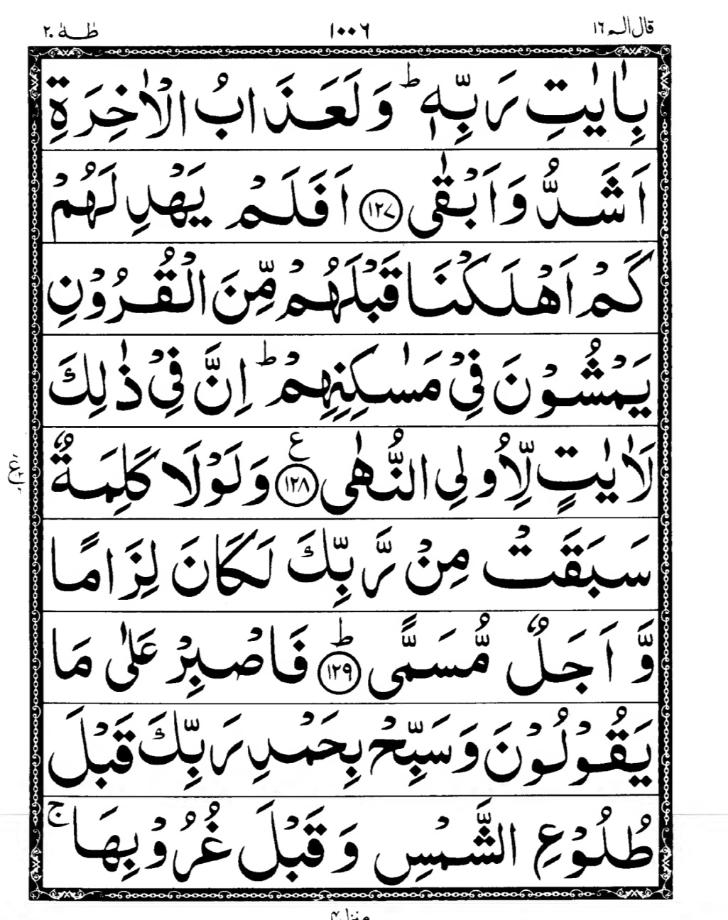 قال الم ١٦ ١٠٠٦ طٰهٰ ٢٠
بِاٰيٰتِ رَبِّهٖ ؕ وَلَعَذَابُ الْاٰخِرَةِ
اَشَدُّ وَاَبْقٰى ﴿۱۲۷﴾ اَفَلَمْ يَهْدِ لَهُمْ
كَمْ اَهْلَكْنَا قَبْلَهُمْ مِّنَ الْقُرُوْنِ
يَمْشُوْنَ فِيْ مَسٰكِنِهِمْ ؕ اِنَّ فِيْ ذٰلِكَ
لَاٰيٰتٍ لِّاُولِي النُّهٰى ﴿۱۲۸﴾ ع وَلَوْلَا كَلِمَةٌ
سَبَقَتْ مِنْ رَّبِّكَ لَكَانَ لِزَامًا
وَّاَجَلٌ مُّسَمًّى ﴿۱۲۹﴾ ؕ فَاصْبِرْ عَلٰى مَا
يَقُوْلُوْنَ وَسَبِّحْ بِحَمْدِ رَبِّكَ قَبْلَ
طُلُوْعِ الشَّمْسِ وَقَبْلَ غُرُوْبِهَا ۚ